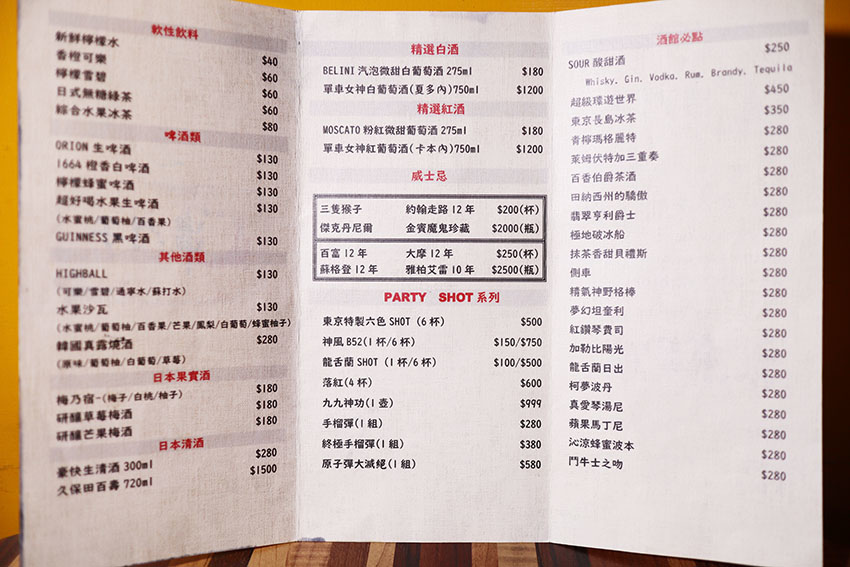 軟性飲料
新鮮檸檬水 $40
香橙可樂 $60
檸檬雪碧 $60
日式無糖綠茶 $60
綜合水果冰茶 $80
啤酒類
ORION 生啤酒 $130
1664 橙香白啤酒 $130
檸檬蜂蜜啤酒 $130
超好喝水果生啤酒 $130
(水蜜桃/葡萄柚/百香果)
GUINNESS 黑啤酒 $130
其他酒類
HIGHBALL $130
(可樂/雪碧/通寧水/蘇打水)
水果沙瓦 $130
(水蜜桃/葡萄柚/百香果/芒果/鳳梨/白葡萄/蜂蜜柚子)
韓國真露燒酒 $280
(原味/葡萄柚/白葡萄/草莓)
日本果實酒
梅乃宿-(梅子/白桃/柚子) $180
研釀草莓梅酒 $180
研釀芒果梅酒 $180
日本清酒
豪快生清酒 300ml $280
久保田百壽 720ml $1500
精選白酒
BELINI 汽泡微甜白葡萄酒 275ml $180
單車女神白葡萄酒(夏多內)750ml $1200
精選紅酒
MOSCATO 粉紅微甜葡萄酒 275ml $180
單車女神紅葡萄酒(卡本內)750ml $1200
威士忌
三隻猴子 約翰走路 12 年 $200(杯)
傑克丹尼爾 金賓魔鬼珍藏 $2000(瓶)
百富 12 年 大摩 12 年 $250(杯)
蘇格登 12 年 雅柏艾雷 10 年 $2500(瓶)
PARTY SHOT 系列
東京特製六色 SHOT (6 杯) $500
神風 B52(1 杯/6 杯) $150/$750
龍舌蘭 SHOT (1 杯/6 杯) $100/$500
落紅(4 杯) $600
九九神功(1 壺) $999
手榴彈(1 組) $280
終極手榴彈(1 組) $380
原子彈大滅絕(1 組) $580
酒館必點
SOUR 酸甜酒 $250
Whisky, Gin, Vodka, Rum, Brandy, Tequila
超級環遊世界 $450
東京長島冰茶 $350
青檸瑪格麗特 $280
萊姆伏特加三重奏 $280
百香伯爵茶酒 $280
田納西州的驕傲 $280
翡翠亨利爵士 $280
極地破冰船 $280
抹茶香甜貝禮斯 $280
側車 $280
精氣神野格棒 $280
夢幻坦奎利 $280
紅鑽琴費司 $280
加勒比陽光 $280
龍舌蘭日出 $280
柯夢波丹 $280
真愛琴湯尼 $280
蘋果馬丁尼 $280
沁涼蜂蜜波本 $280
鬥牛士之吻 $280